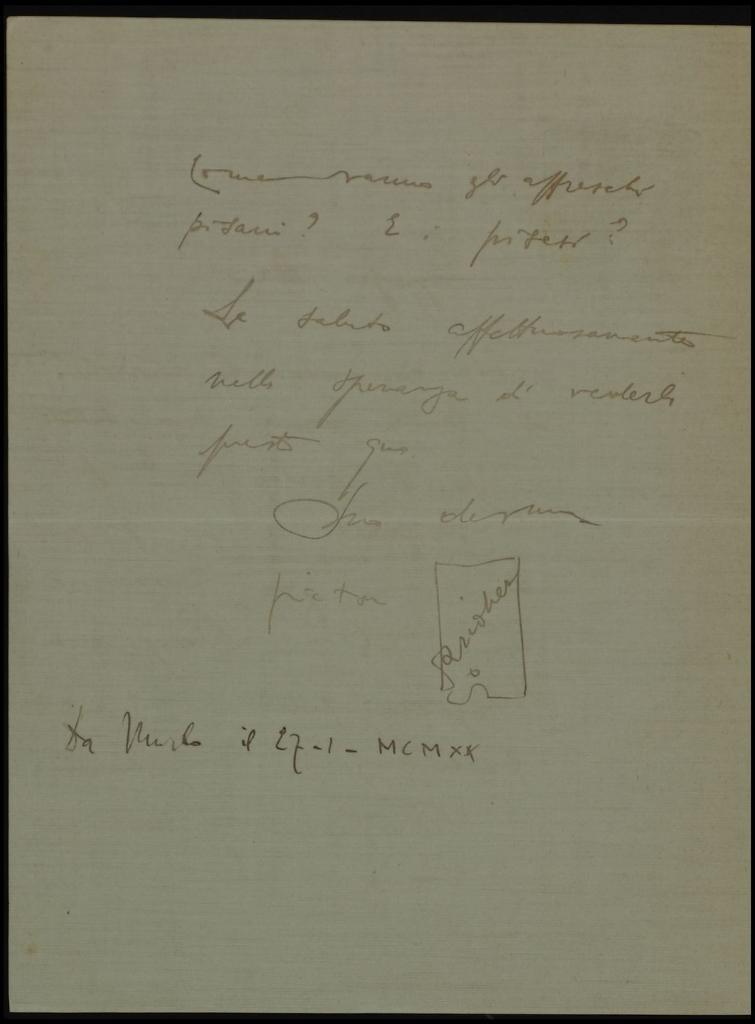 Come vanno gli affreschi
pisani? E i pisesi?
La saluto affettuosamente
nella speranza di vederla
presto qua.
Suo devmo
pictor
Da Murlo il 27-I-MCMXX